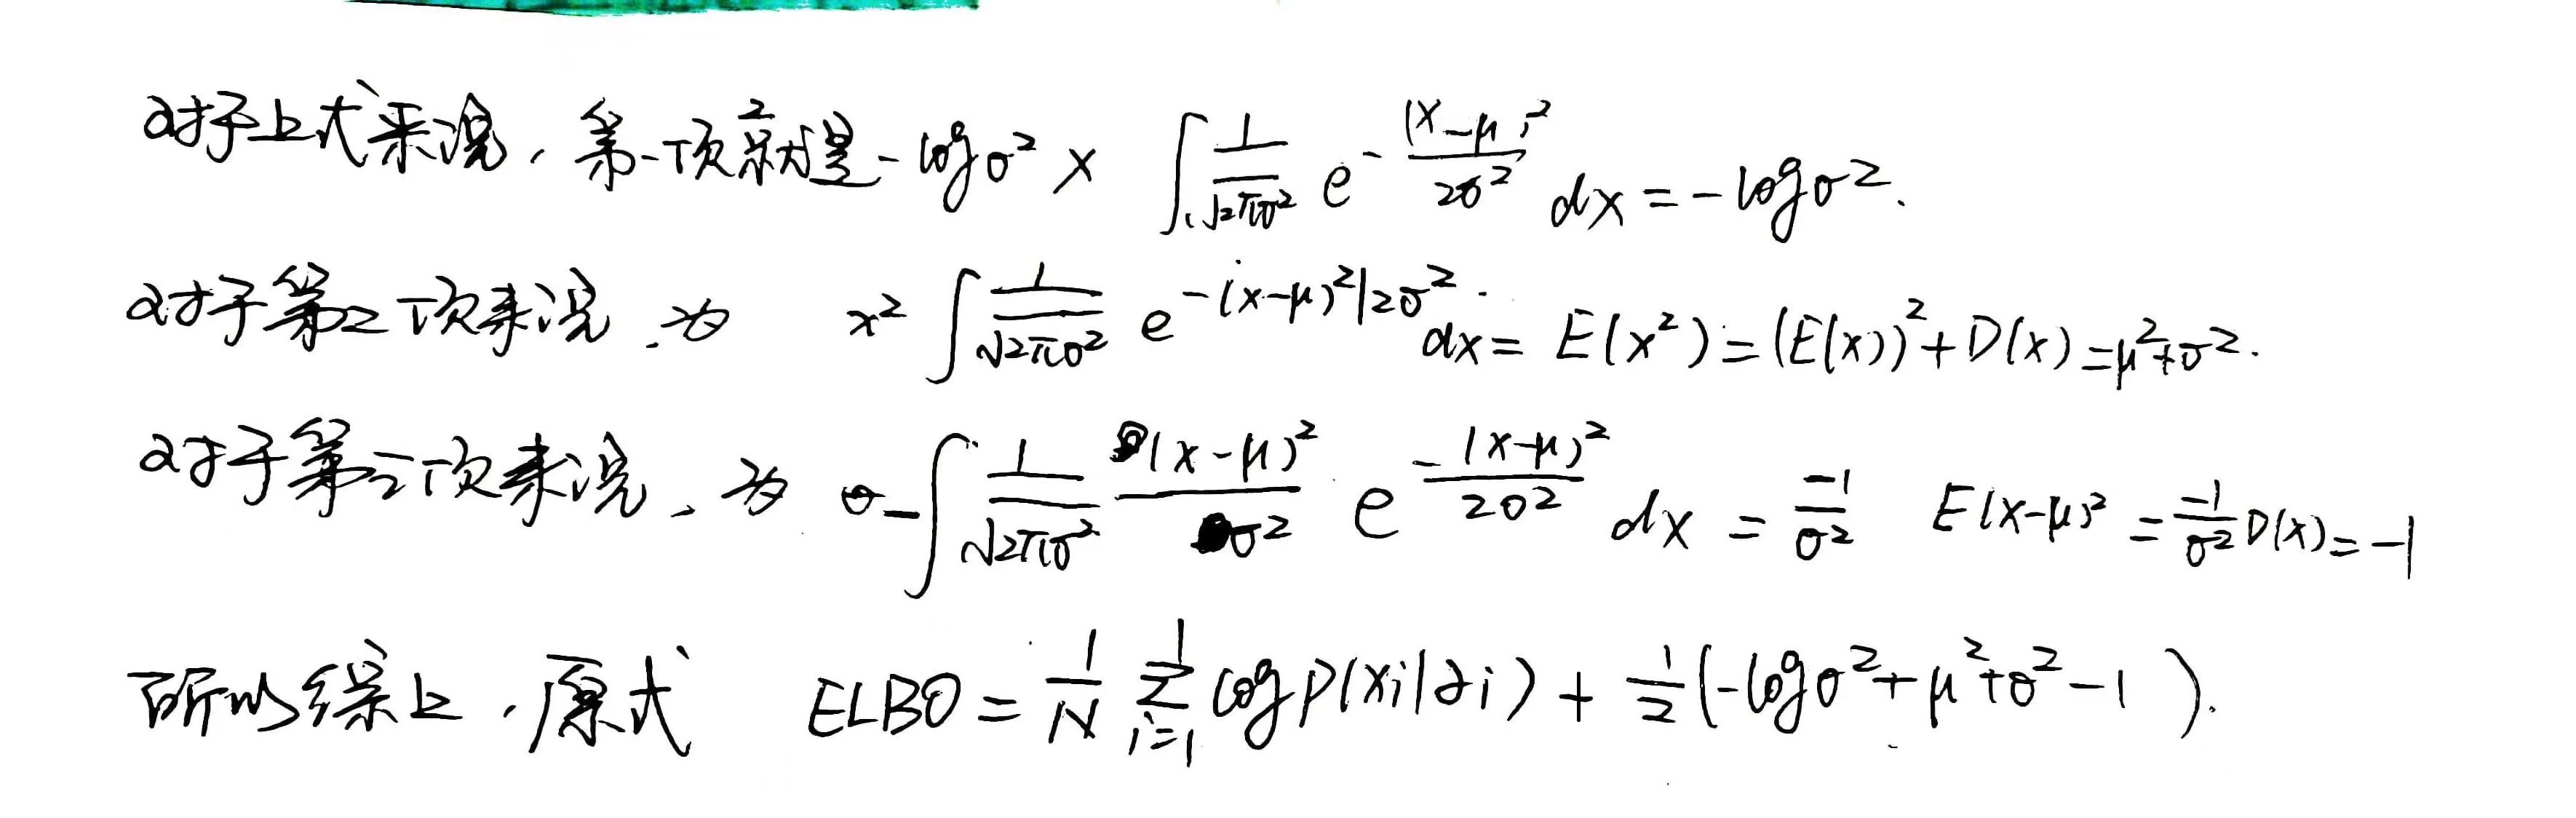 对于上式来说，第一项就是 -logσ² × ∫ 1/√2πσ² e^-(x-μ)²/2σ² dx = -logσ².
对于第二项来说，为 x² ∫ 1/√2πσ² e^-(x-μ)²/2σ² dx = E(x²) = (E(x))² + D(x) = μ²+σ².
对于第三项来说，为 -∫ 1/√2πσ² (x-μ)²/σ² e^-(x-μ)²/2σ² dx = -1/σ² E(x-μ)² = -1/σ² D(x) = -1
所以综上，原式 ELBO = 1/N Σ i=1 log p(xi|zi) + 1/2 (-logσ² + μ² + σ² - 1).